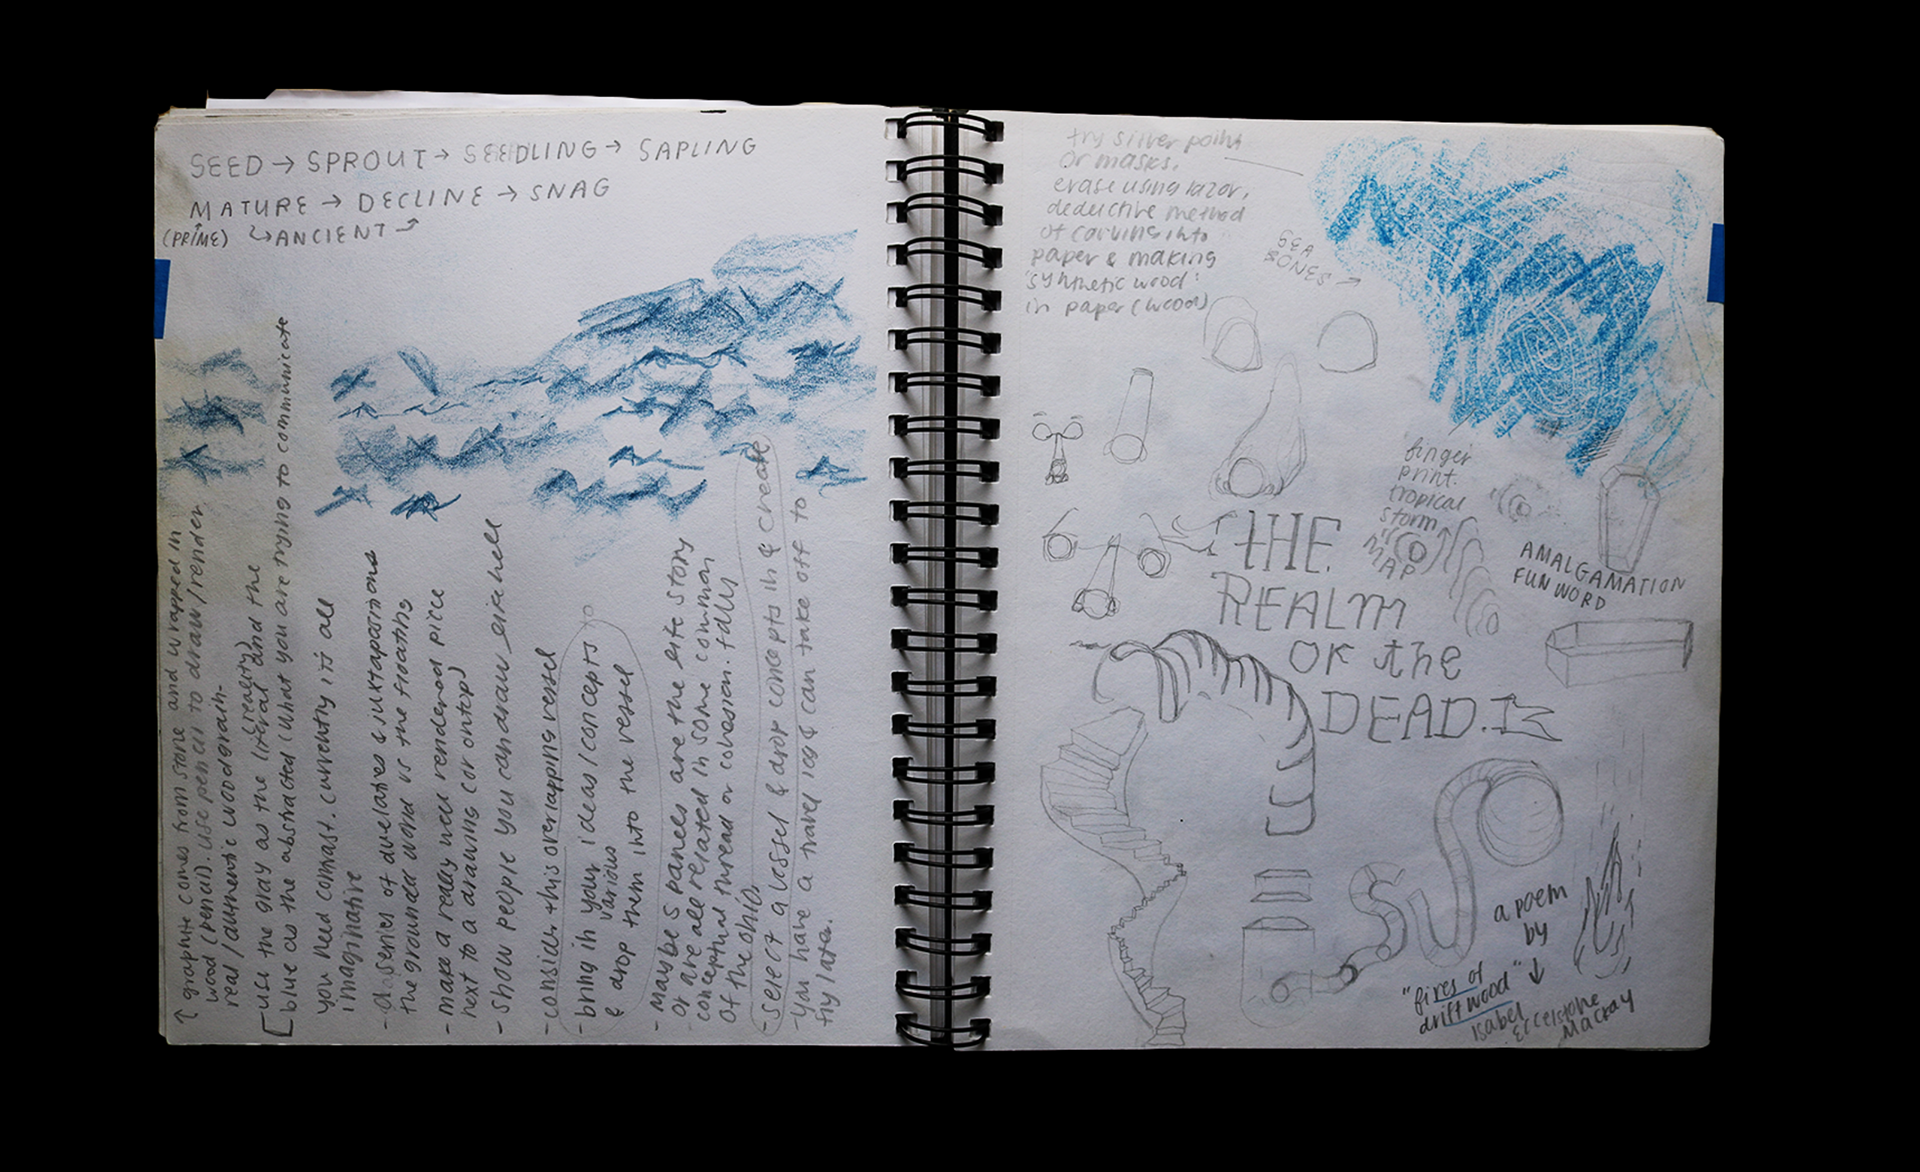 SEED → SPROUT → SEEDLING → SAPLING
MATURE → DECLINE → SNAG
(PRIME) ↳ ANCIENT
↑ graphite comes from stone and wrapped in
wood (pencil). Use pencil to draw/render
real/authentic woodgrain.
- use the gray as the literal and the
(reality)
blue as the abstracted (what you are trying to communicate
you need contrast. currently it's all
imaginative
series of dualities & juxtapositions
the grounded world vs the floating
- make a really well rendered piece
next to a drawing (or ontop)
- show people you can draw
- consider this overlapping vessel
- bring in your ideas/concepts
various
& drop them into the vessel
- maybe 5 panels are the life story
or are all related in some common
conceptual thread or cohesion.
of the
- select a vessel & drop concepts in & create
- you have a travel log & can take off to
fly later.
try silver point
or masks.
erase using razor,
deductive method
of carving into
paper & making
"synthetic wood"
in paper (wood)
SEA
BONES →
finger
print.
tropical
storm
MAP
AMALGAMATION
FUN WORD
THE
REALM
OF the
DEAD.
a poem
by
"fires of
driftwood"
Isabel
Ecclestone
Mackay